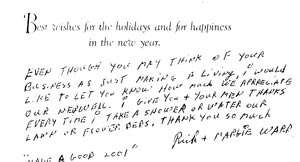 Best wishes for the holidays and for happiness
in the new year.
EVEN THOUGH YOU MAY THINK OF YOUR
BUSINESS AS JUST MAKING A LIVING, I WOULD
LIKE TO LET YOU KNOW HOW MUCH WE APPRECIATE
OUR NEW WELL. I GIVE YOU + YOUR MEN THANKS
EVERY TIME I TAKE A SHOWER OR WATER OUR
LAWN OR FLOWER BEDS. THANK YOU SO MUCH
Rich + MARGIE WARR
"HAVE A GOOD